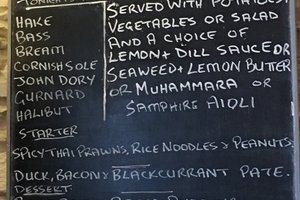 HAKE
BASS
BREAM
CORNISH SOLE
JOHN DORY
GURNARD
HALIBUT
SERVED WITH POTATOES,
VEGETABLES OR SALAD
AND A CHOICE OF
LEMON + DILL SAUCE OR
SEAWEED + LEMON BUTTER
OR MUHAMMARA OR
SAMPHIRE AIOLI
STARTER
SPICY THAI PRAWNS, RICE NOODLES & PEANUTS.
DUCK, BACON & BLACKCURRANT PATE.
DESSERT.